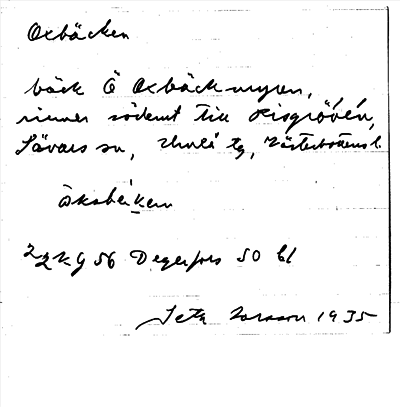 Oxbäcken
bäck Ö Oxbäckmyren,
rinner söderut till Risgröván,
Sävars sn, Umeå tg, Västerbottens l.
22kg 56 Degerfors 50 bl
Larsson 1935